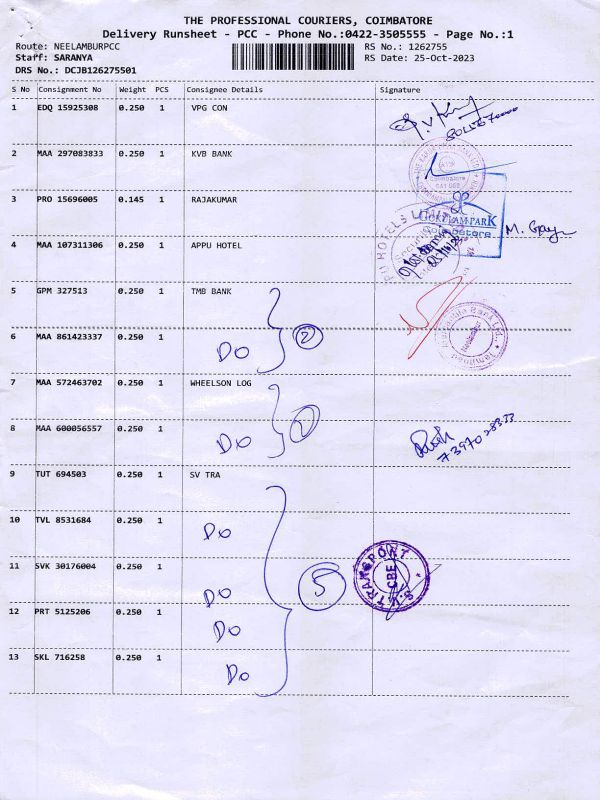 THE PROFESSIONAL COURIERS, COIMBATORE
Delivery Runsheet - PCC - Phone No.:0422-3505555 - Page No.:1
Route: NEELAMBURPCC RS No.: 1262755
Staff: SARANYA RS Date: 25-Oct-2023
DRS No.: DCJB126275501
S No Consignment No Weight PCS Consignee Details Signature
1 EDQ 15925308 0.250 1 VPG CON
2 MAA 297083833 0.250 1 KVB BANK
3 PRO 15696005 0.145 1 RAJAKUMAR
GOKULAM PARK
Coimbatore
4 MAA 107311306 0.250 1 APPU HOTEL
5 GPM 327513 0.250 1 TMB BANK
6 MAA 861423337 0.250 1 DO 2
7 MAA 572463702 0.250 1 WHEELSON LOG
8 MAA 600056557 0.250 1 DO 2
9 TUT 694503 0.250 1 SV TRA
10 TVL 8531684 0.250 1 DO
11 SVK 30176004 0.250 1 DO 5
S.V. TRANSPORT
CBE
12 PRT 5125206 0.250 1 DO
13 SKL 716258 0.250 1 DO